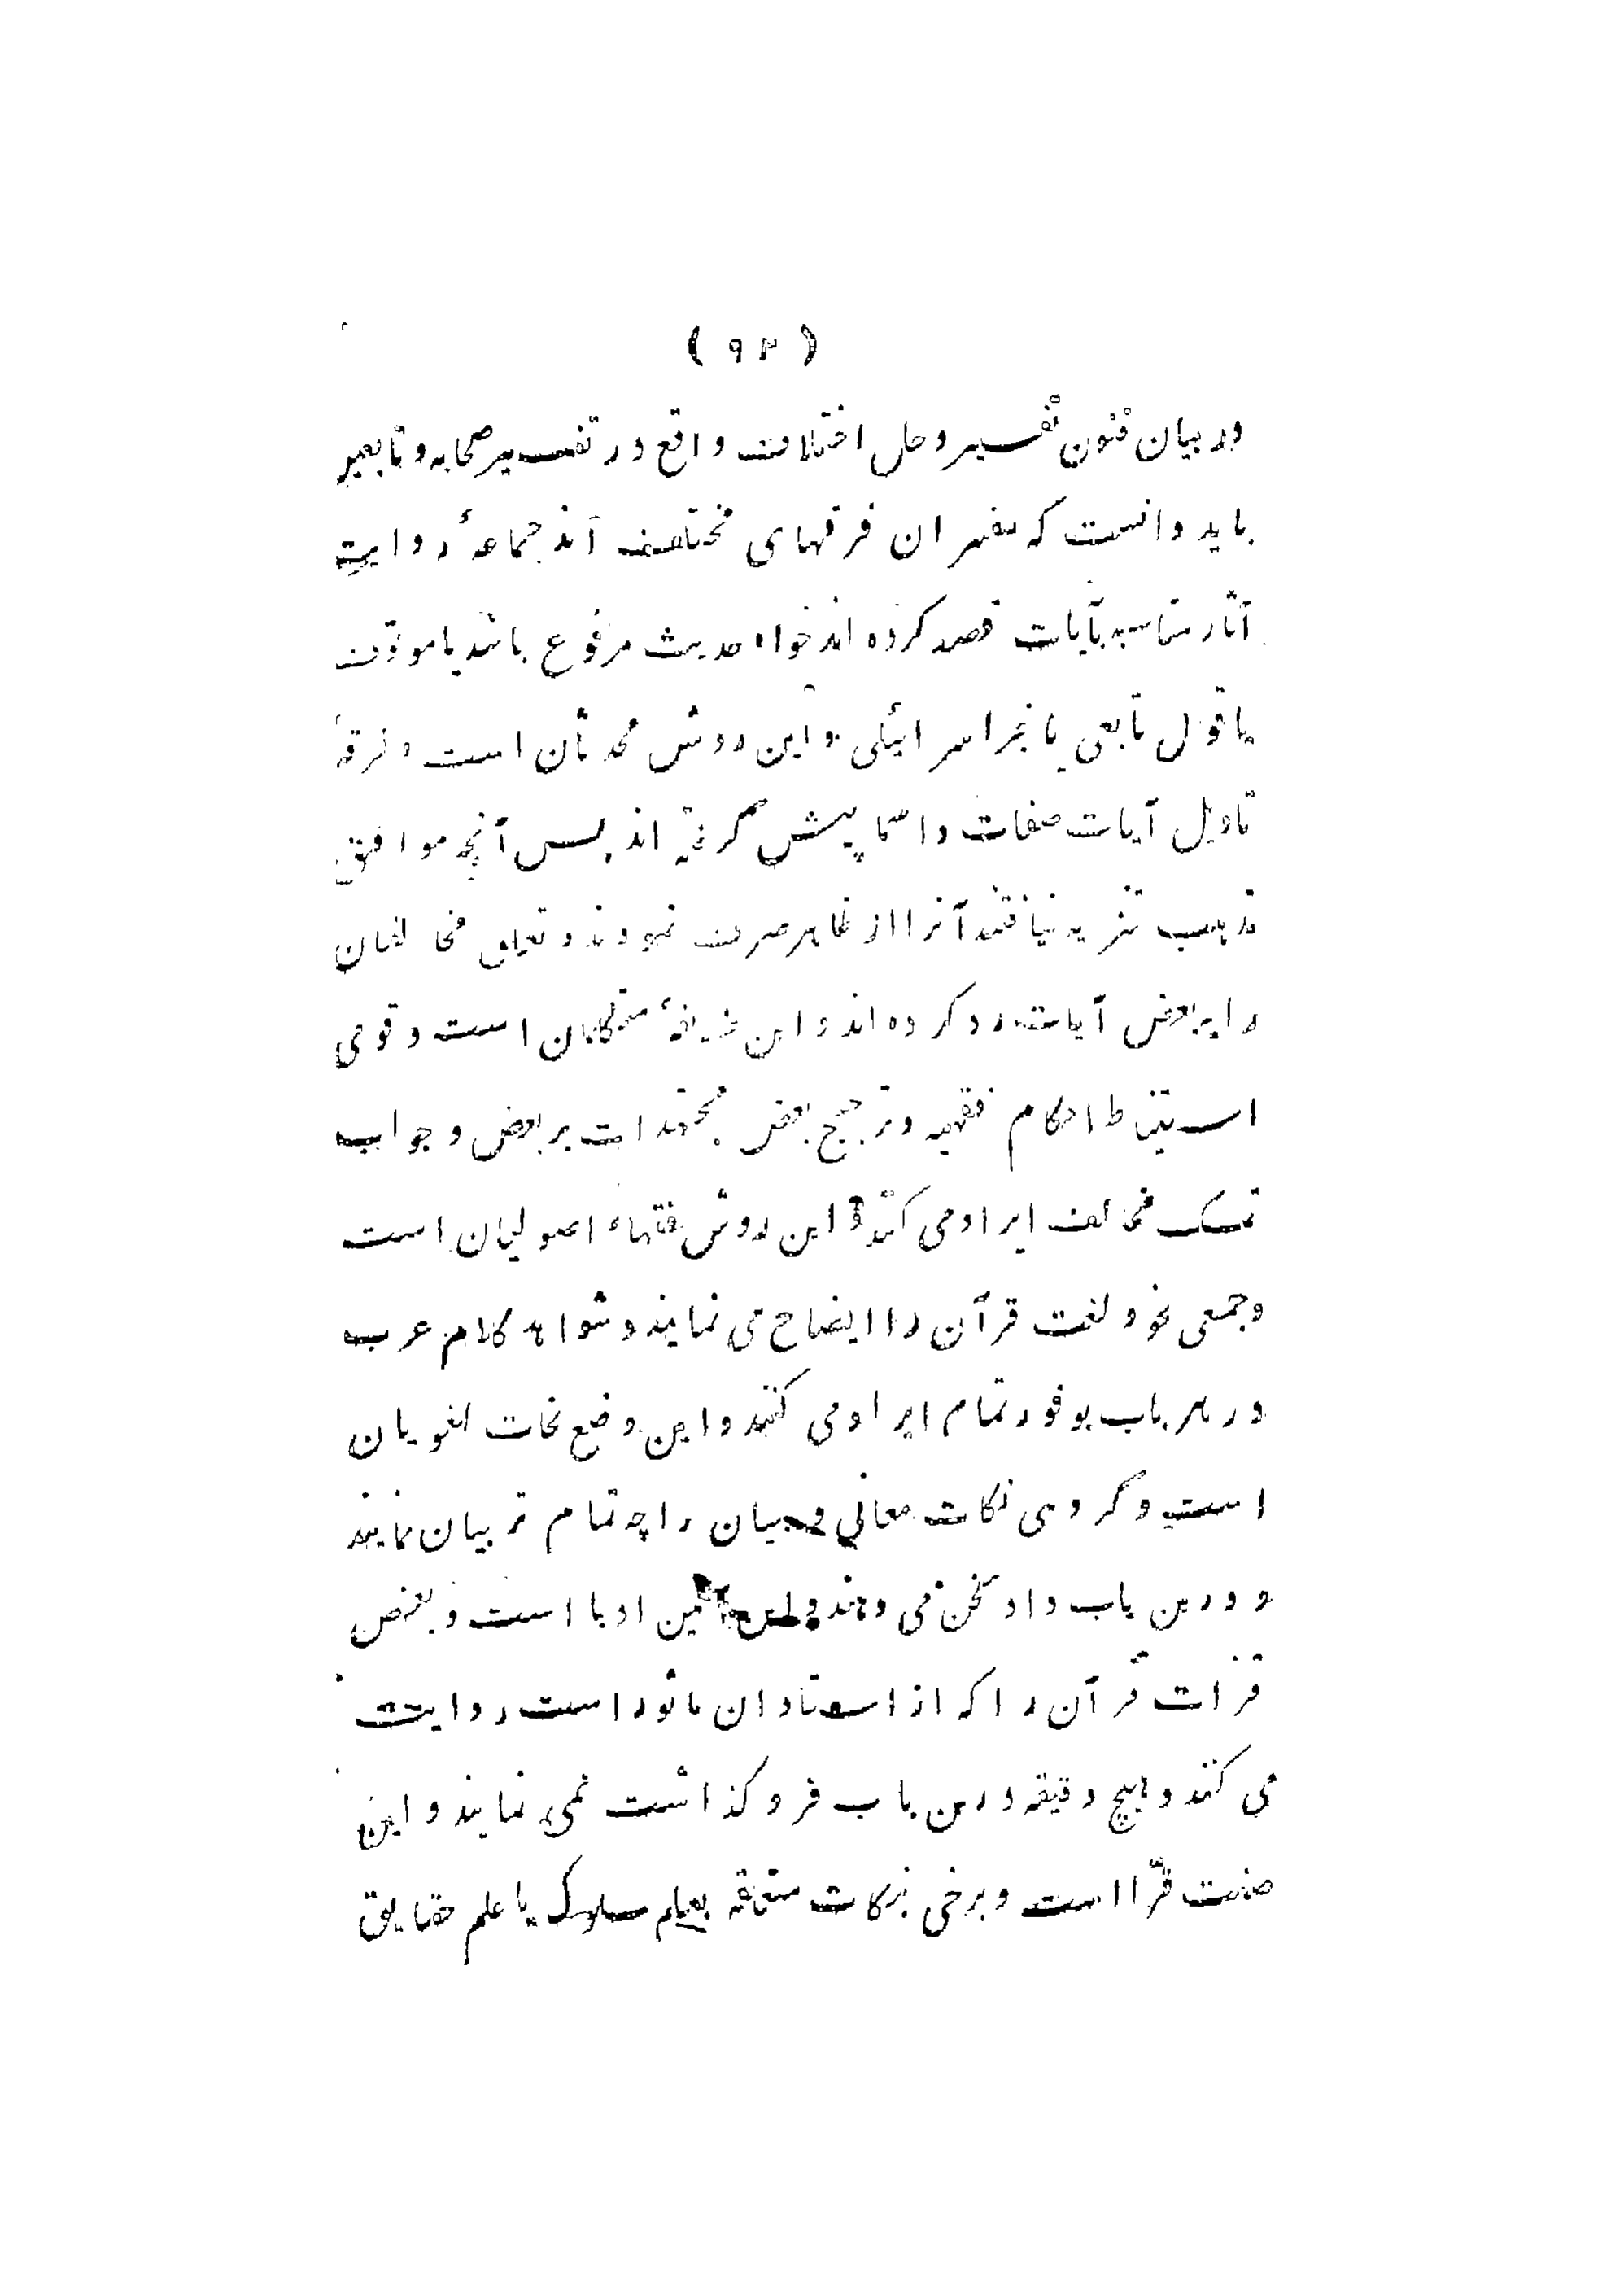 ( ۹۳ )
در بیان فنون تفسیر و حل اختلاف واقع در تفسیر صحابه و تابعین
باید دانست که مفسران فرقهای مختلف اند جماعهٔ روایت
آثار مناسبه بآیات قصد کرده اند خواه حدیث مرفوع باشد یا موقوف
یا قول تابعی یا خبر اسرائیلی و این روش محدثان است و فرقهٔ
تاویل آیات صفات و اسما پیش گرفته اند پس آنچه موافق
مذهب تنزیه نیافتند آنرا از ظاهر صرف نمودند و تعلق مخالفان
را ببعض آیات رد کرده اند و این طریقهٔ متکلمان است و قومی
استنباط احکام فقهیه و ترجیح بعض مجتهدات بر بعض و جواب
تمسک مخالف ایراد می کنند و این روش فقهاء اصولیان است
و جمعی نحو و لغت قرآن را ایضاح می نمایند و شواهد کلام عرب
در هر باب بوفور تمام ایراد می کنند و این وضع نحات لغویان
است و گروهی نکات معانی و بیان را چه تمام تر بیان نمایند
و درین باب داد سخن می دهند و این ادبا است و بعض
قرات قرآن را که از استادان ماثور است روایت
می کنند و هیچ دقیقه درین باب فروگذاشت نمی نمایند و این
صفت قرّا است و برخی بنکات متعلقه بعلم سلوک یا علم حقایق